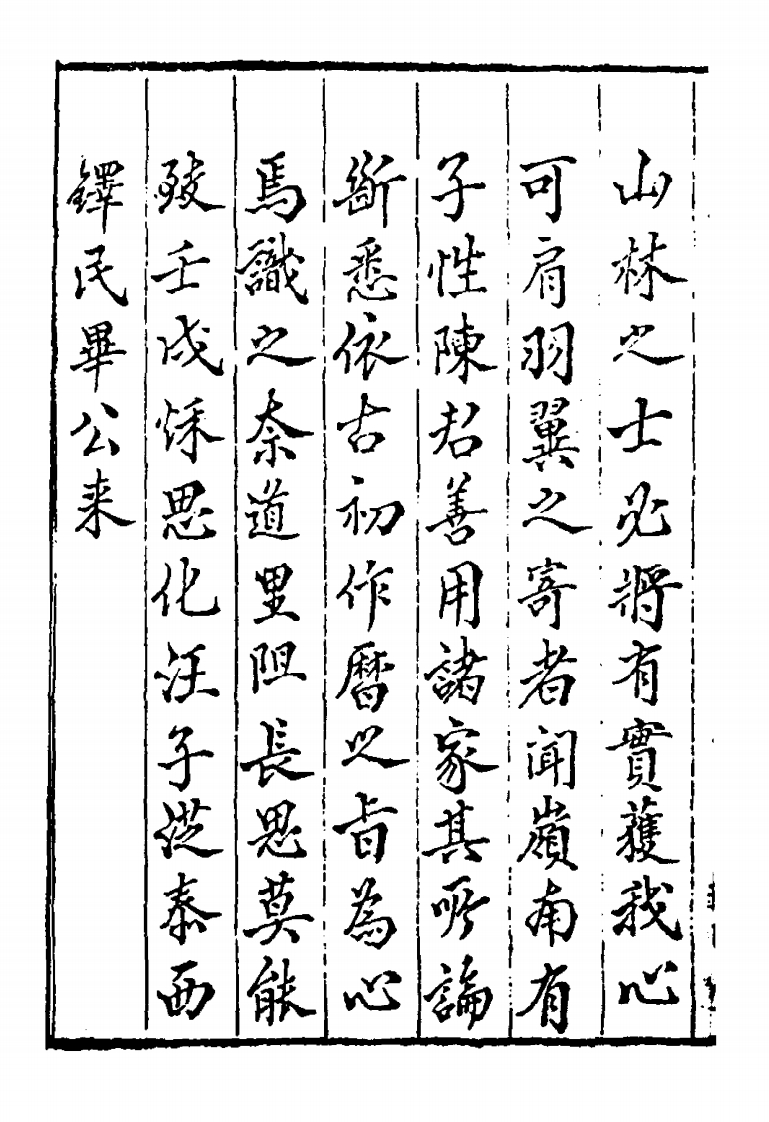 山林之士必將有實獲我心
可肩羽翼之寄者聞嶺南有
子性陳君善用諸家其所論
斷悉依古初作曆之旨為心
焉識之柰道里阻長思莫能
致壬戌秋思化汪子從泰西
鐸民畢公来